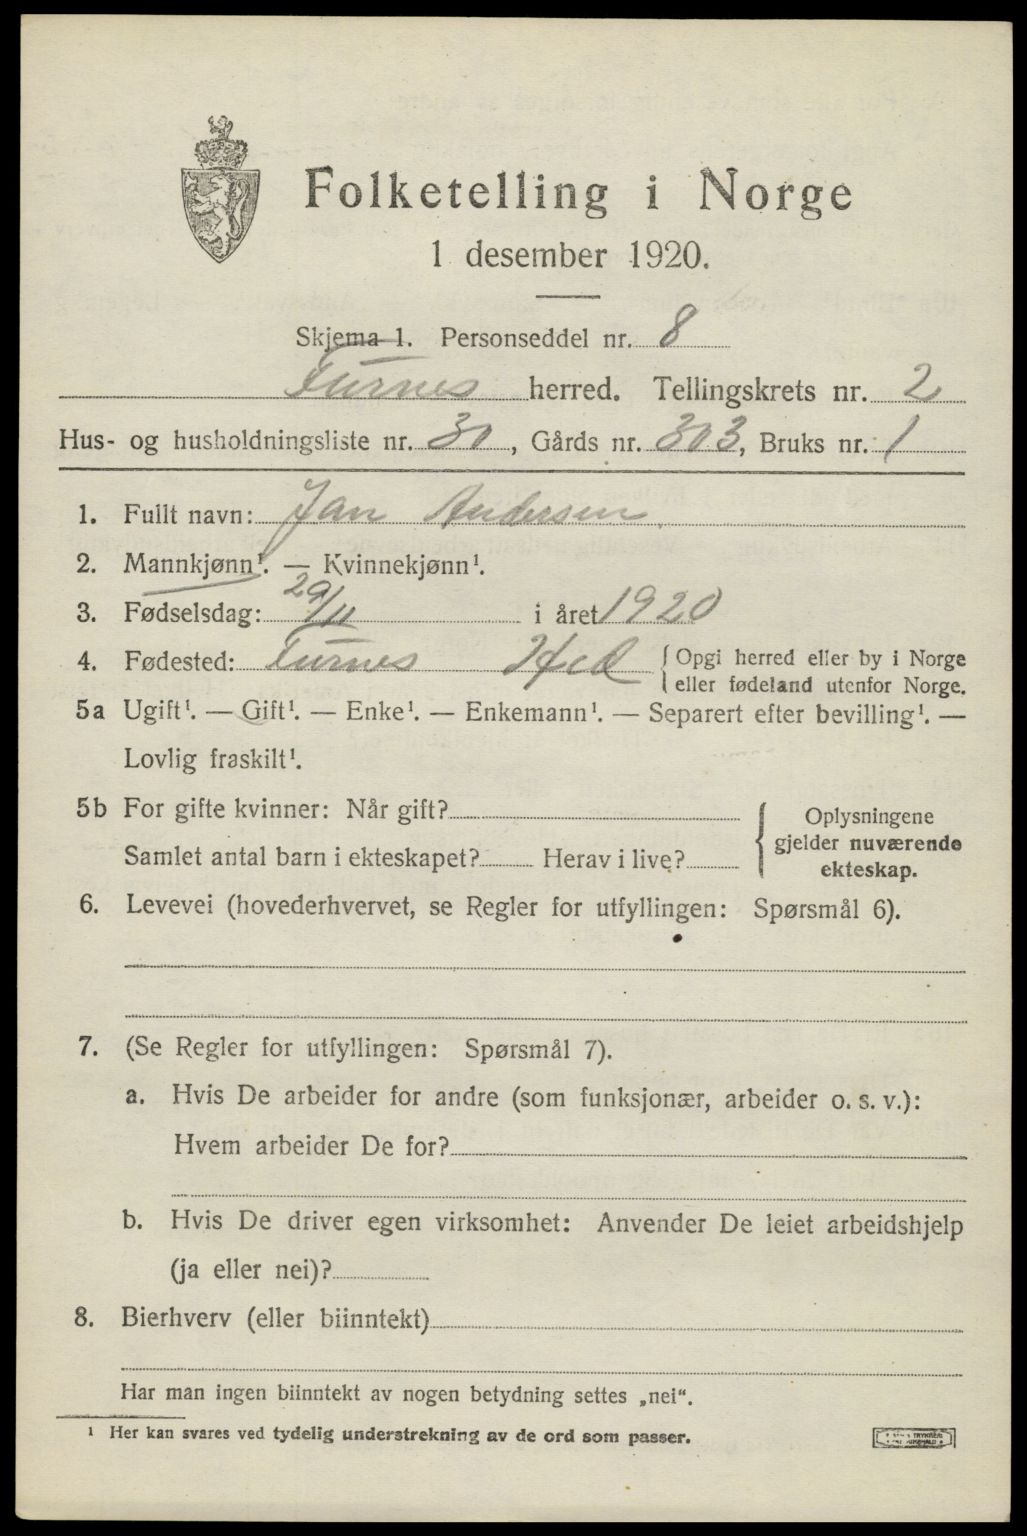 Folketelling i Norge
1 desember 1920.
Skjema 1. Personseddel nr. 8
Furnes herred. Tellingskrets nr. 2
Hus- og husholdningsliste nr. 30, Gårds nr. 303, Bruks nr. 1
1. Fullt navn: Jan Andersen
2. Mannkjønn¹. — Kvinnekjønn¹.
3. Fødselsdag: 29/11 i året 1920
4. Fødested: Furnes Hed { Opgi herred eller by i Norge
eller fødeland utenfor Norge.
5a Ugift¹. — Gift¹. — Enke¹. — Enkemann¹. — Separert efter bevilling¹. —
Lovlig fraskilt¹.
5b For gifte kvinner: Når gift?
Samlet antal barn i ekteskapet? Herav i live?
Oplysningene
gjelder nuværende
ekteskap.
6. Levevei (hovederhvervet, se Regler for utfyllingen: Spørsmål 6).
7. (Se Regler for utfyllingen: Spørsmål 7).
a. Hvis De arbeider for andre (som funksjonær, arbeider o. s. v.):
Hvem arbeider De for?
b. Hvis De driver egen virksomhet: Anvender De leiet arbeidshjelp
(ja eller nei)?
8. Bierhverv (eller biinntekt)
Har man ingen biinntekt av nogen betydning settes „nei“.
¹ Her kan svares ved tydelig understrekning av de ord som passer.